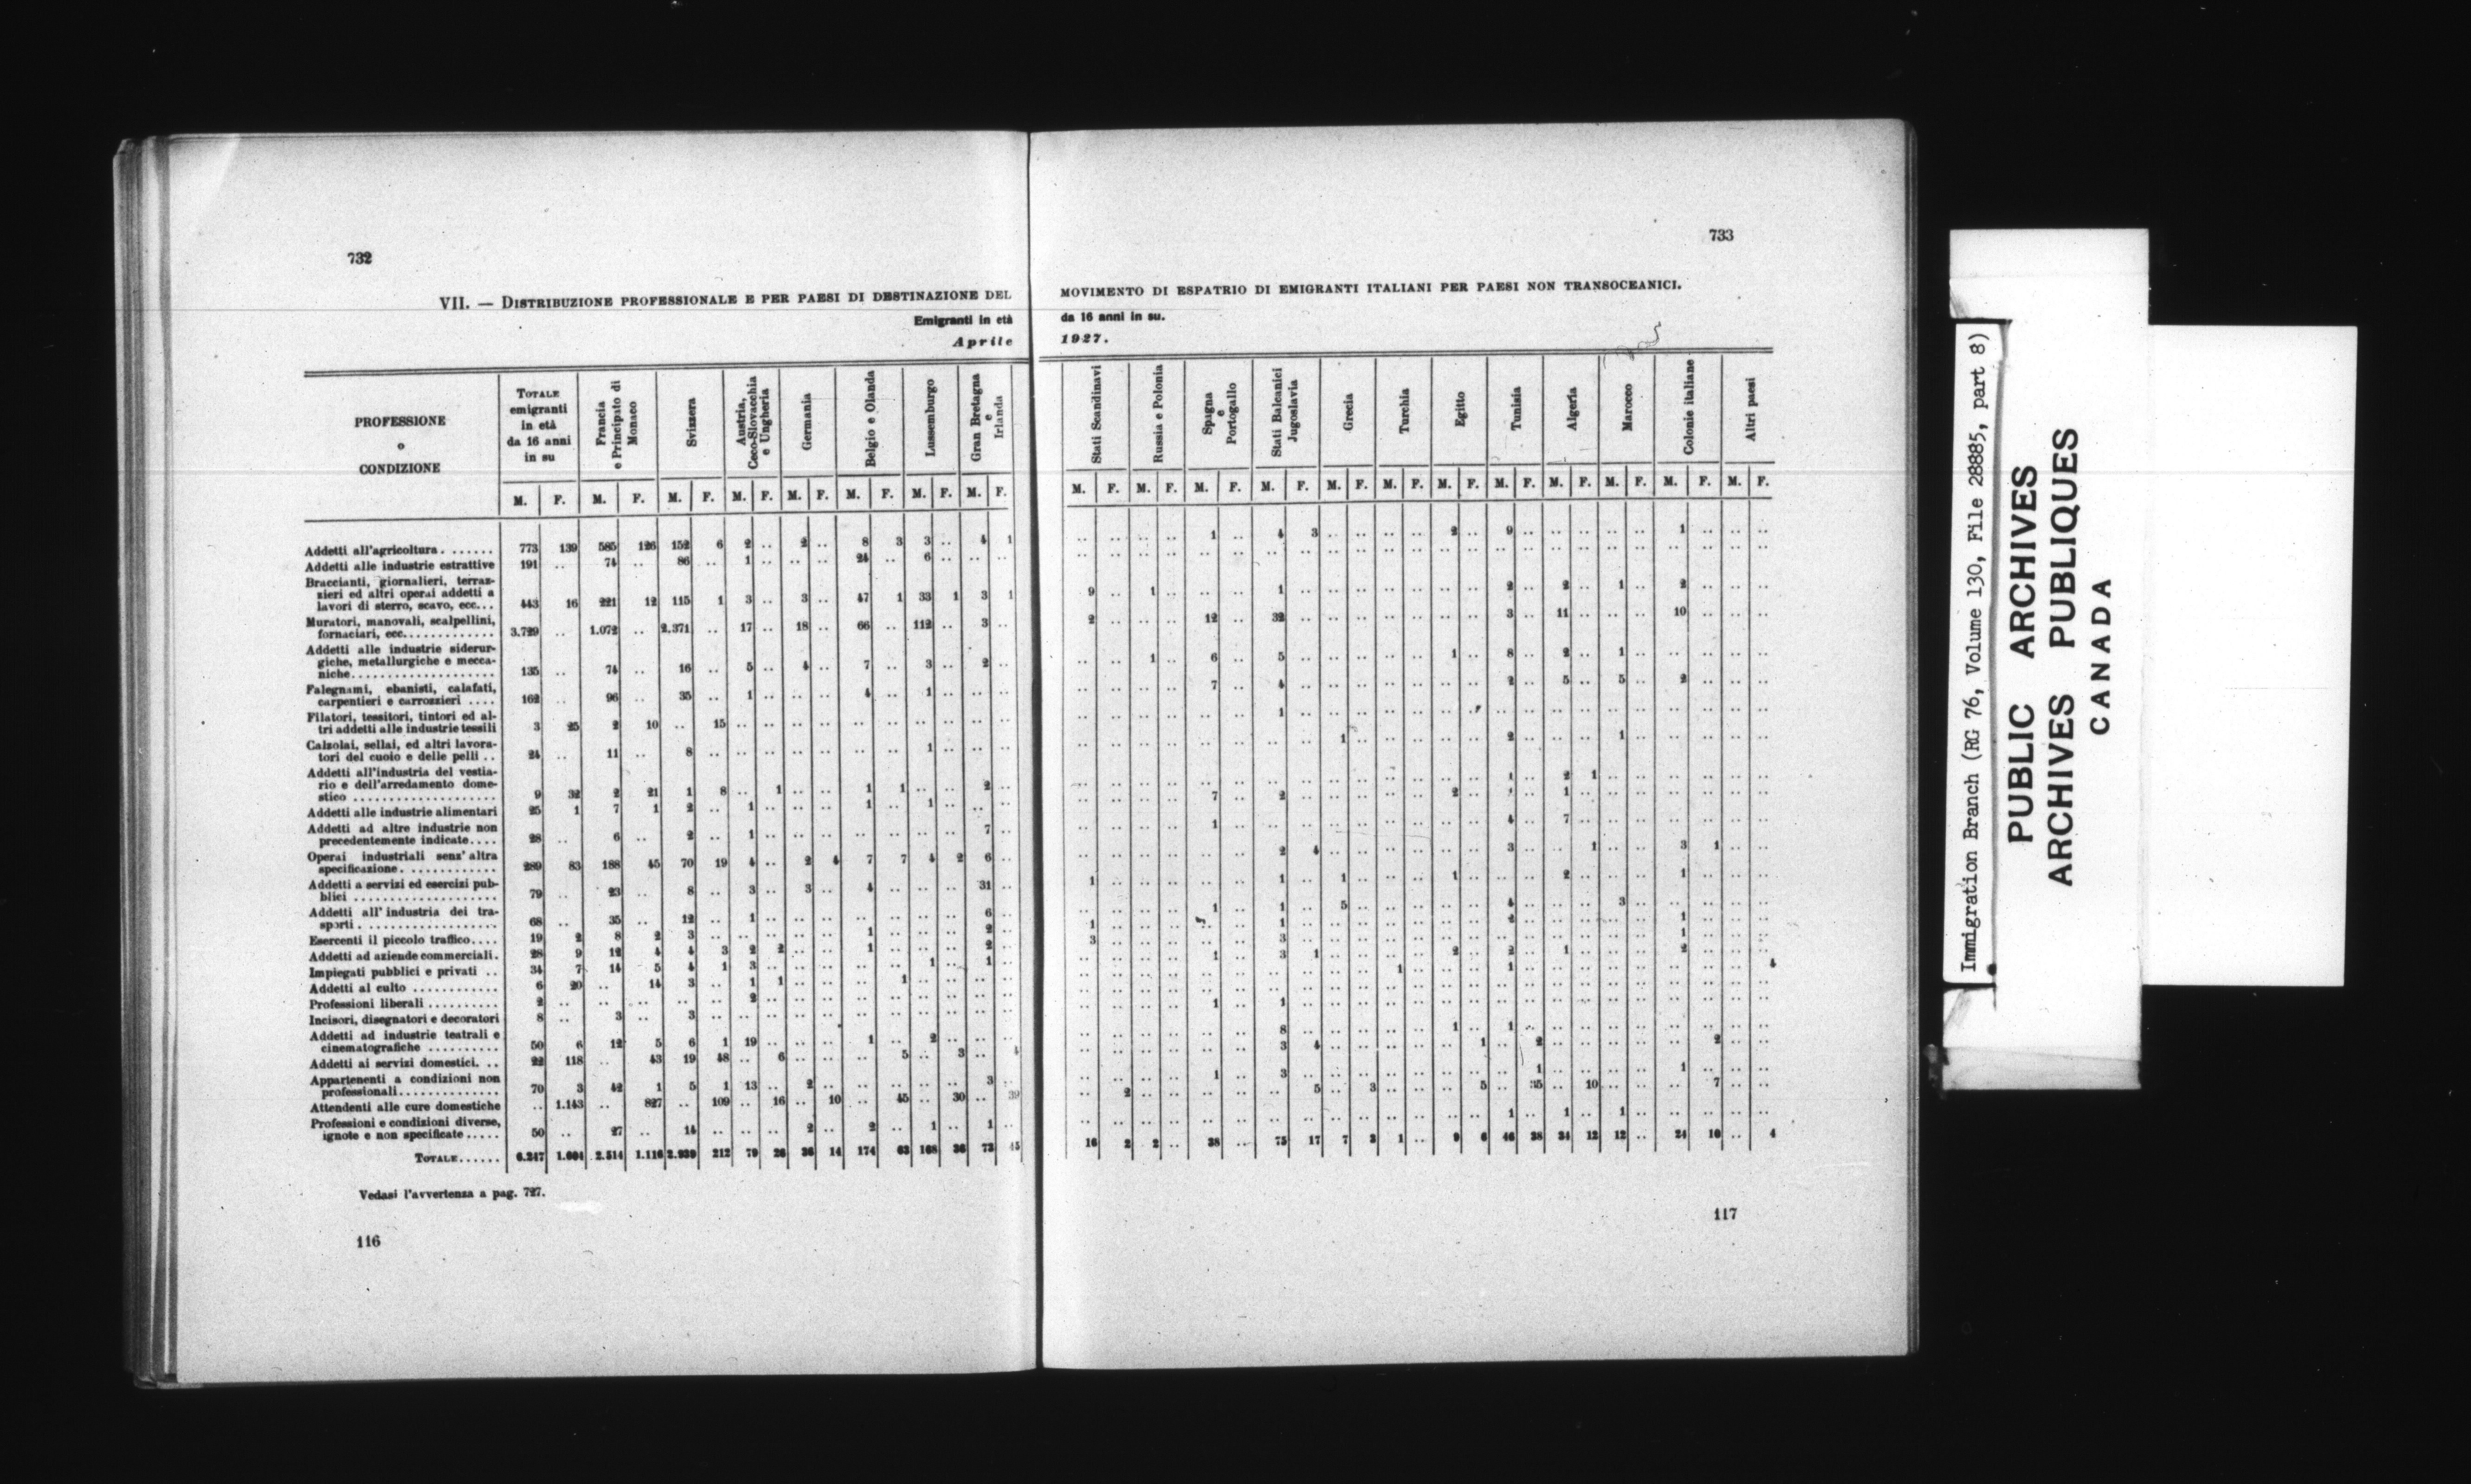 732
VII. — DISTRIBUZIONE PROFESSIONALE E PER PAESI DI DESTINAZIONE DEL
Emigranti in età
Aprile
PROFESSIONE
o
CONDIZIONE
TOTALE
emigranti
in età
da 16 anni
in su
Francia
e Principato di
Monaco
Svizzera
Austria,
Ceco-Slovacchia
e Ungheria
Germania
Belgio e Olanda
Lussemburgo
Gran Bretagna
e
Irlanda
M. F. M. F. M. F. M. F. M. F. M. F. M. F. M. F.
Addetti all'agricoltura....... 773 139 585 126 152 6 2 .. 2 .. 8 3 3 .. 4 1
Addetti alle industrie estrattive 191 .. 74 .. 86 .. 1 .. .. .. 24 .. 6 .. .. ..
Braccianti, giornalieri, terraz-
zieri ed altri operai addetti a
lavori di sterro, scavo, ecc... 443 16 221 12 115 1 3 .. 3 .. 47 1 33 1 3 1
Muratori, manovali, scalpellini,
fornaciari, ecc............. 3.729 .. 1.072 .. 2.371 .. 17 .. 18 .. 66 .. 112 .. 3 ..
Addetti alle industrie siderur-
giche, metallurgiche e mecca-
niche.................... 135 .. 74 .. 16 .. 5 .. 4 .. 7 .. 3 .. 2 ..
Falegnami, ebanisti, calafati,
carpentieri e carrozzieri .... 162 .. 96 .. 35 .. 1 .. .. .. 4 .. 1 .. .. ..
Filatori, tessitori, tintori ed al-
tri addetti alle industrie tessili 3 25 2 10 .. 15 .. .. .. .. .. .. .. .. .. ..
Calzolai, sellai, ed altri lavora-
tori del cuoio e delle pelli .. 24 .. 11 .. 8 .. .. .. .. .. .. .. 1 .. .. ..
Addetti all'industria del vestia-
rio e dell'arredamento dome-
stico .................... 9 32 2 21 1 8 .. 1 .. .. 1 1 .. .. 2 ..
Addetti alle industrie alimentari 25 1 7 1 2 .. 1 .. .. .. 1 .. 1 .. .. ..
Addetti ad altre industrie non
precedentemente indicate.... 28 .. 6 .. 2 .. 1 .. .. .. .. .. .. .. 7 ..
Operai industriali senz' altra
specificazione............. 289 83 188 45 70 19 4 .. 2 4 7 7 4 2 6 ..
Addetti a servizi ed esercizi pub-
blici .................... 79 .. 23 .. 8 .. 3 .. 3 .. 4 .. .. .. 31 ..
Addetti all' industria dei tra-
sporti.................... 68 .. 35 .. 12 .. 1 .. .. .. .. .. .. .. 6 ..
Esercenti il piccolo traffico.... 19 2 8 2 3 .. .. .. .. .. 1 .. .. .. 2 ..
Addetti ad aziende commerciali. 28 9 12 4 4 3 2 2 .. .. 1 .. .. .. 2 ..
Impiegati pubblici e privati .. 34 7 14 5 4 1 3 .. .. .. .. .. 1 .. 1 ..
Addetti al culto ............ 6 20 .. 14 3 .. 1 1 .. .. .. 1 .. .. .. ..
Professioni liberali .......... 2 .. .. .. .. .. 2 .. .. .. .. .. .. .. .. ..
Incisori, disegnatori e decoratori 8 .. 3 .. 3 .. .. .. .. .. .. .. .. .. .. ..
Addetti ad industrie teatrali e
cinematografiche .......... 50 6 12 5 6 1 19 .. .. .. 1 .. 2 .. .. ..
Addetti ai servizi domestici. .. 22 118 .. 43 19 48 .. 6 .. .. .. 5 .. 3 .. 4
Appartenenti a condizioni non
professionali.............. 70 3 42 1 5 1 13 .. 2 .. .. .. .. .. 3 ..
Attendenti alle cure domestiche .. 1.143 .. 827 .. 109 .. 16 .. 10 .. 45 .. 30 .. 39
Professioni e condizioni diverse,
ignote e non specificate ..... 50 .. 27 .. 14 .. .. .. 2 .. 2 .. 1 .. 1 ..
TOTALE...... 6.247 1.604 2.514 1.116 2.939 212 79 26 36 14 174 63 168 36 73 45
Vedasi l'avvertenza a pag. 727.
116
733
MOVIMENTO DI ESPATRIO DI EMIGRANTI ITALIANI PER PAESI NON TRANSOCEANICI.
da 16 anni in su.
1927.
Stati Scandinavi
Russia e Polonia
Spagna
e
Portogallo
Stati Balcanici
Jugoslavia
Grecia
Turchia
Egitto
Tunisia
Algeria
Marocco
Colonie italiane
Altri paesi
M. F. M. F. M. F. M. F. M. F. M. F. M. F. M. F. M. F. M. F. M. F. M. F.
.. .. .. .. 1 .. 4 3 .. .. .. .. 2 .. 9 .. .. .. .. .. 1 .. .. ..
.. .. .. .. .. .. .. .. .. .. .. .. .. .. .. .. .. .. .. .. .. .. .. ..
9 .. 1 .. .. .. 1 .. .. .. .. .. .. .. 2 .. 2 .. 1 .. 2 .. .. ..
2 .. .. .. 12 .. 32 .. .. .. .. .. .. .. 3 .. 11 .. .. .. 10 .. .. ..
.. .. 1 .. 6 .. 5 .. .. .. .. .. 1 .. 8 .. 2 .. 1 .. .. .. .. ..
.. .. .. .. 7 .. 4 .. .. .. .. .. .. .. 2 .. 5 .. 5 .. 2 .. .. ..
.. .. .. .. .. .. 1 .. .. .. .. .. .. .. .. .. .. .. .. .. .. .. .. ..
.. .. .. .. .. .. .. .. 1 .. .. .. .. .. 2 .. .. .. 1 .. .. .. .. ..
.. .. .. .. .. .. .. .. .. .. .. .. .. .. 1 .. 2 1 .. .. .. .. .. ..
.. .. .. .. 7 .. 2 .. .. .. .. .. 2 .. 1 .. 1 .. .. .. .. .. .. ..
.. .. .. .. 1 .. .. .. .. .. .. .. .. .. 4 .. 7 .. .. .. .. .. .. ..
.. .. .. .. .. .. 2 4 .. .. .. .. .. .. 3 .. .. 1 .. .. 3 1 .. ..
1 .. .. .. .. .. 1 .. 1 .. .. .. 1 .. .. .. 2 .. .. .. 1 .. .. ..
.. .. .. .. 1 .. 1 .. 5 .. .. .. .. .. 4 .. .. .. 3 .. .. .. .. ..
1 .. .. .. .. .. 1 .. .. .. .. .. .. .. 2 .. .. .. .. .. 1 .. .. ..
3 .. .. .. .. .. 3 .. .. .. .. .. .. .. .. .. .. .. .. .. 1 .. .. ..
.. .. .. .. 1 .. 3 1 .. .. .. .. 2 .. 2 .. 1 .. .. .. 2 .. .. ..
.. .. .. .. .. .. .. .. .. .. 1 .. .. .. 1 .. .. .. .. .. .. .. .. 4
.. .. .. .. .. .. .. .. .. .. .. .. .. .. .. .. .. .. .. .. .. .. .. ..
.. .. .. .. 1 .. 1 .. .. .. .. .. .. .. .. .. .. .. .. .. .. .. .. ..
.. .. .. .. .. .. 8 .. .. .. .. .. 1 .. 1 .. .. .. .. .. .. .. .. ..
.. .. .. .. .. .. 3 4 .. .. .. .. .. 1 .. 2 .. .. .. .. .. 2 .. ..
.. .. .. .. 1 .. 3 .. .. .. .. .. .. .. .. 1 .. .. .. .. 1 .. .. ..
.. 2 .. .. .. .. .. 5 .. 3 .. .. .. 5 .. 35 .. 10 .. .. .. 7 .. ..
.. .. .. .. .. .. .. .. .. .. .. .. .. .. 1 .. 1 .. 1 .. .. .. .. ..
16 2 2 .. 38 .. 75 17 7 3 1 .. 9 6 46 38 34 12 12 .. 24 10 .. 4
117
Immigration Branch (RG 76, Volume 130, File 28885, part 8)
PUBLIC ARCHIVES
ARCHIVES PUBLIQUES
CANADA